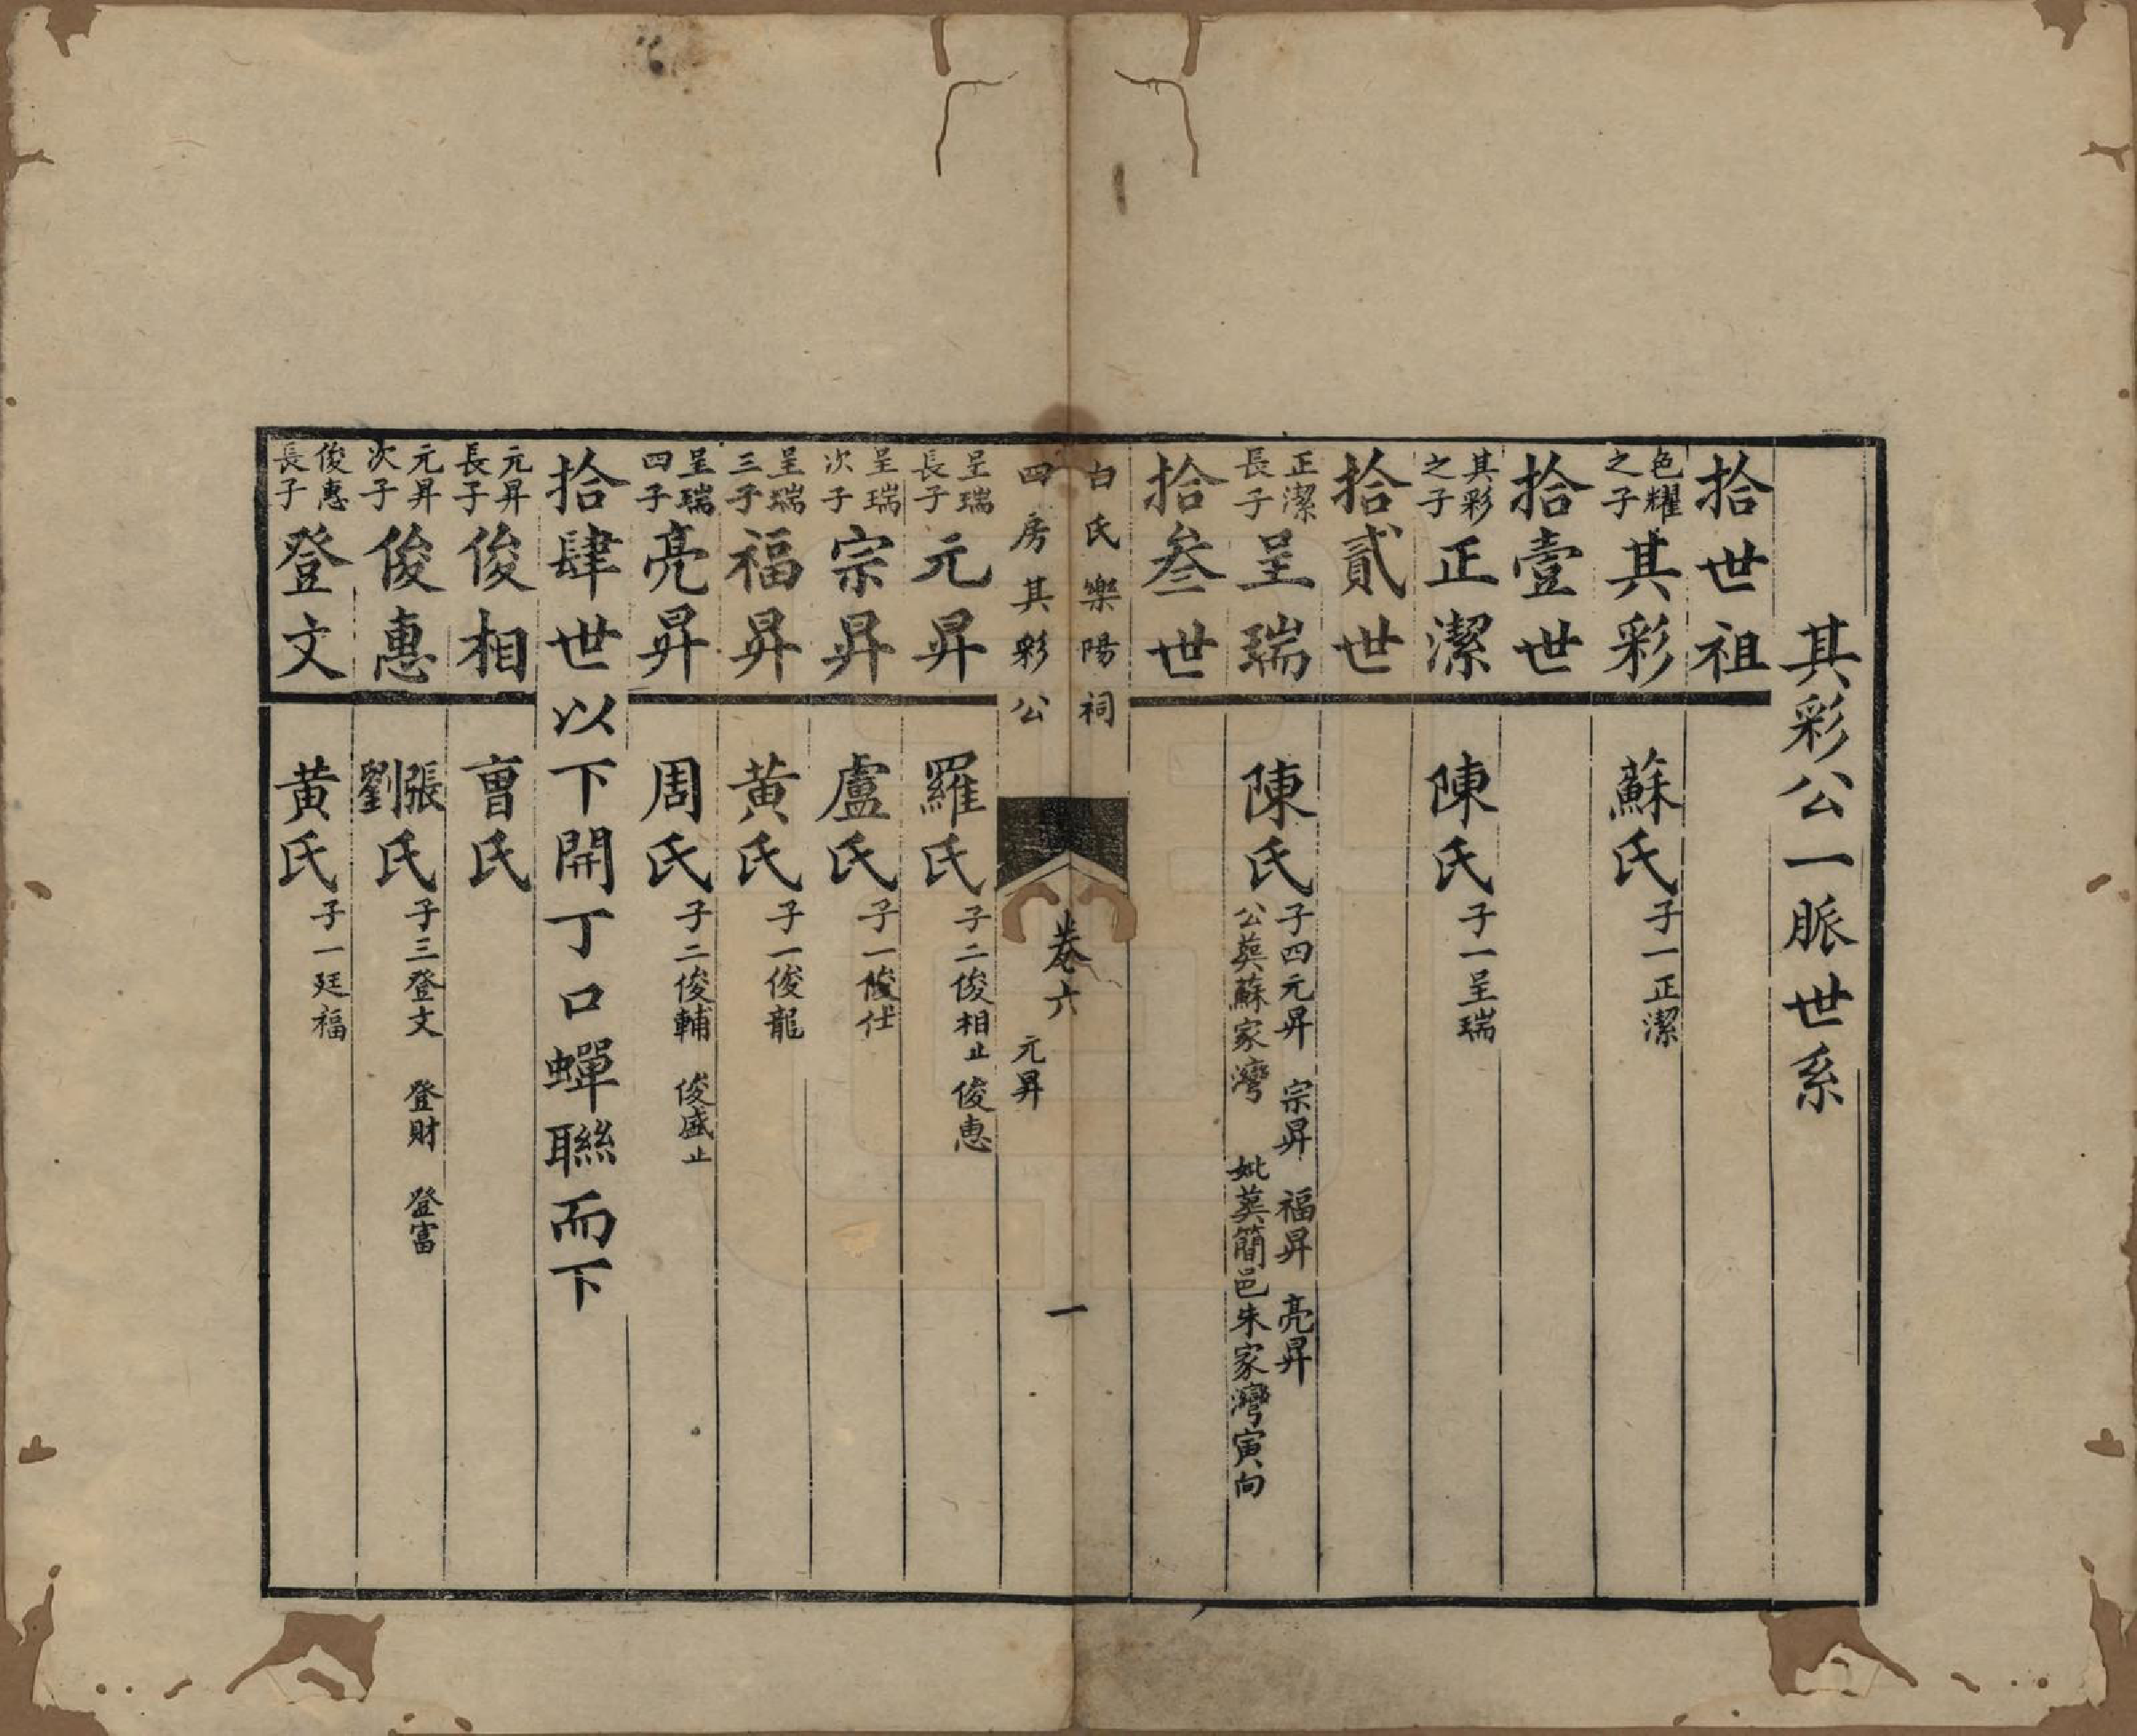 其彩公一脈世系
拾世祖
色耀之子 其彩 蘇氏 子一正潔
拾壹世
其彩之子 正潔 陳氏 子一呈瑞
拾貳世
正潔長子 呈瑞 陳氏 子四元昇 宗昇 福昇 亮昇
公塟蘇家灣 妣塟簡邑朱家灣寅向
拾叁世
白氏樂陽祠
四房其彩公 卷六 元昇 一
呈瑞長子 元昇 羅氏 子二俊相止 俊惠
呈瑞次子 宗昇 盧氏 子一俊仕
呈瑞三子 福昇 黃氏 子一俊龍
呈瑞四子 亮昇 周氏 子二俊輔 俊盛止
拾肆世以下開丁口蟬聯而下
元昇長子 俊相 曺氏
元昇次子 俊惠 張劉氏 子三登文 登財 登富
俊惠長子 登文 黃氏 子一廷福